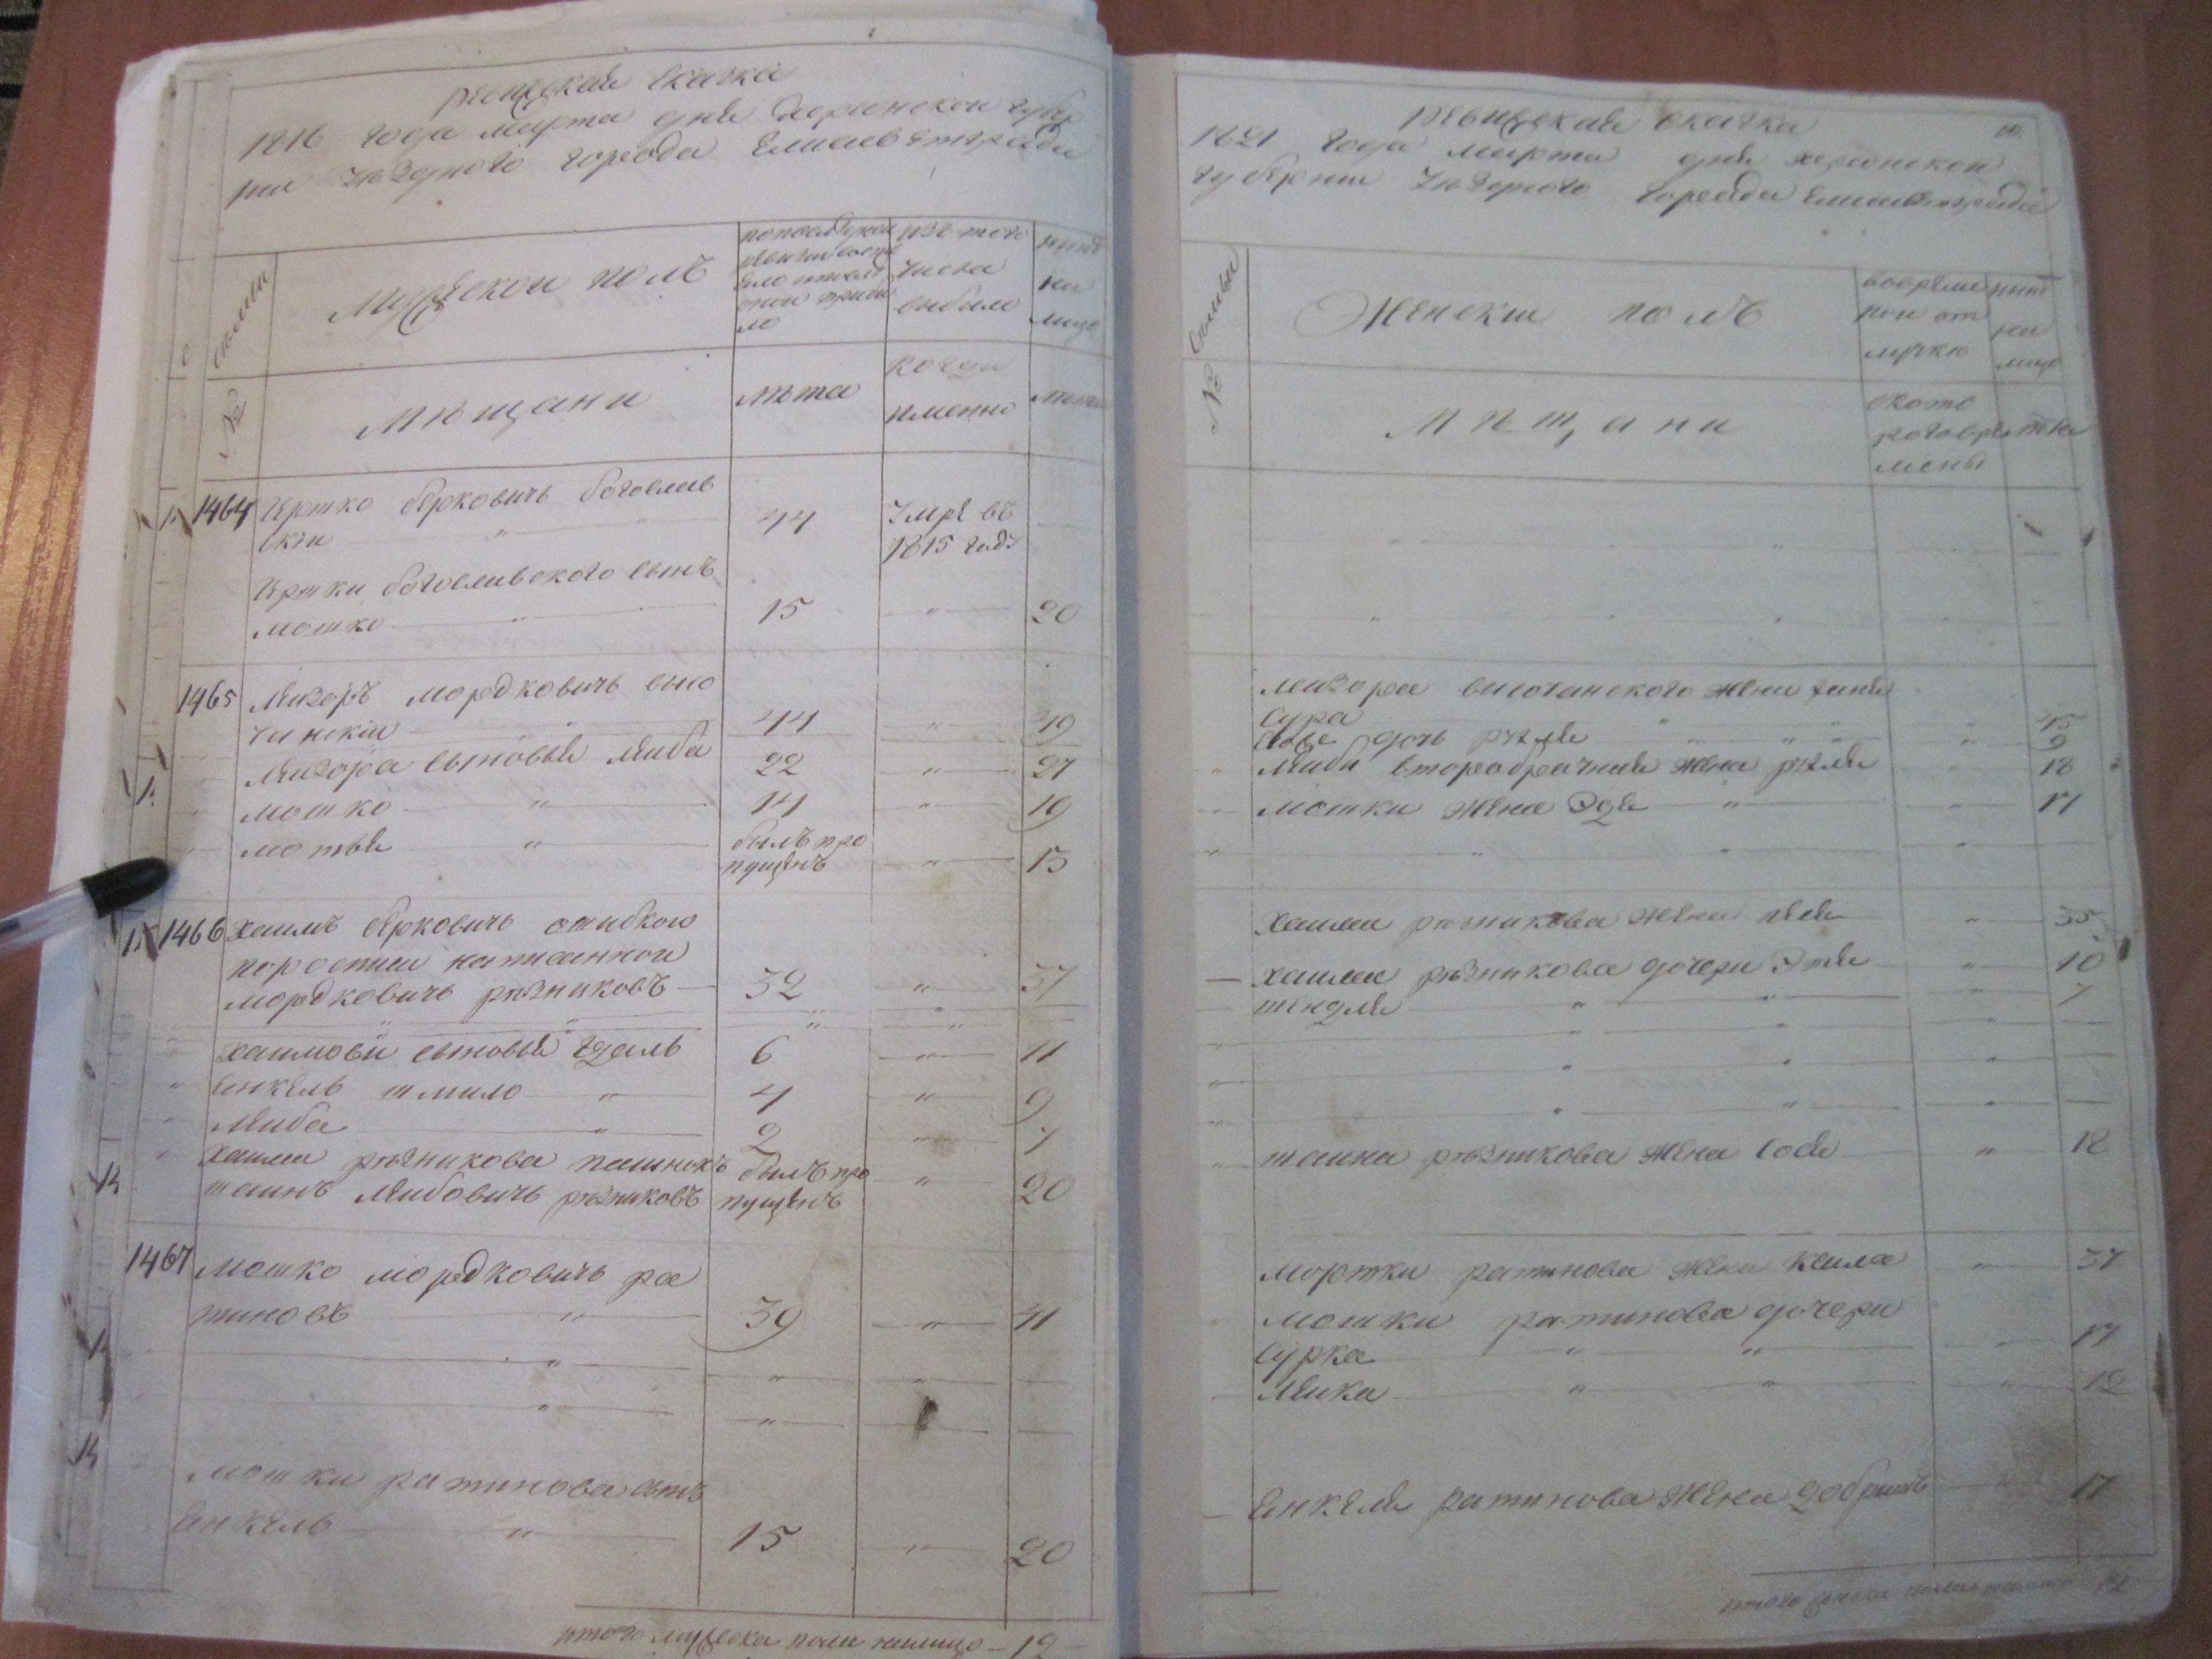 ревизская сказка
1816 года марта дня херсонской губер
нии уездного города Елисаветграда
семьи
№
Мужеской полъ
по последней
ревизии состо
яло и после
оной прибы
ло
изъ того
числа
выбыло
ныне
на
лицо
мещани
лета
когда
именно
лета
1464 Иртко берковичь богослав
ски 44 Умре въ
1815 году
Иртки богославского сынъ
мошко 15 20
1465 Лейзоръ мордковичь высо
чинскiи 44 49
Лейзора сыновья Лейба 22 27
мошко 14 19
мотья былъ про
пущенъ 13
1466 хаимъ берковичь ошибкою
по ростеи написанной
мордковичь резниковъ 32 37
хаимови сыновья Удаль 6 11
Енкель шмило 4 9
Лейба 2 7
хаима резникова племникъ былъ про
шаинъ Лейбовичь резниковъ пущенъ 20
1467 Мошко мордковичь ра
тиновъ 39 41
Мошки ратинова сынъ
Енкель 15 20
итого мужеска пола налицо 12
ревизская сказка
1821 года марта дня херсонской
губернии уездного города Елисаветграда
№ семьи
Женски полъ
вовремен
ной от
лучке
ныне
на
лицо
мещани
с кото
рого вре
мены
лета
Лейзора височанского жена ханя
Сура 45
Ево дочь рухля 9
Лейби второбрачная жена рухля 18
мошки жена Эдя 17
хаима резникова жена лея 35
хаима резникова дочери Этя 10
шендля 7
шаина резникова жена Сося 18
Мортки ратинова жена Кеила 37
Мошки ратинова дочери
Сурка 17
Лейка 12
Енкеля ратинова жена добришъ 17
итого женска пола налицо 12